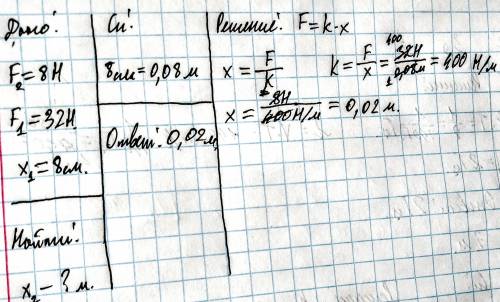 Дано:
F₂=8Н
F₁=32Н
x₁=8см.
Найти:
x₂-? м.
Си:
8см=0,08м
Ответ: 0,02м
Решение: F=k·x
x=F/k k=F/x=32Н/0,08м=400 Н/м
x=8Н/400Н/м=0,02 м.